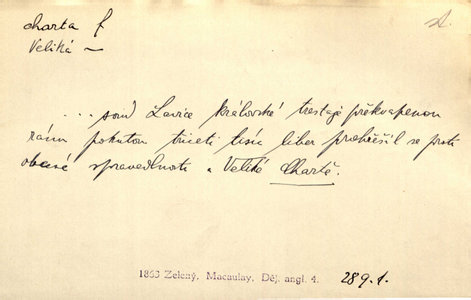 charta f
Veliká ~
st.
... soud Lavice královské trestaje překvapenou
ránu pokutou třiceti tisíc liber prohřešil se proti
obecné spravedlnosti a Veliké Chartě.
1863 Zelený, Macaulay, Děj. angl. 4. 289.1.